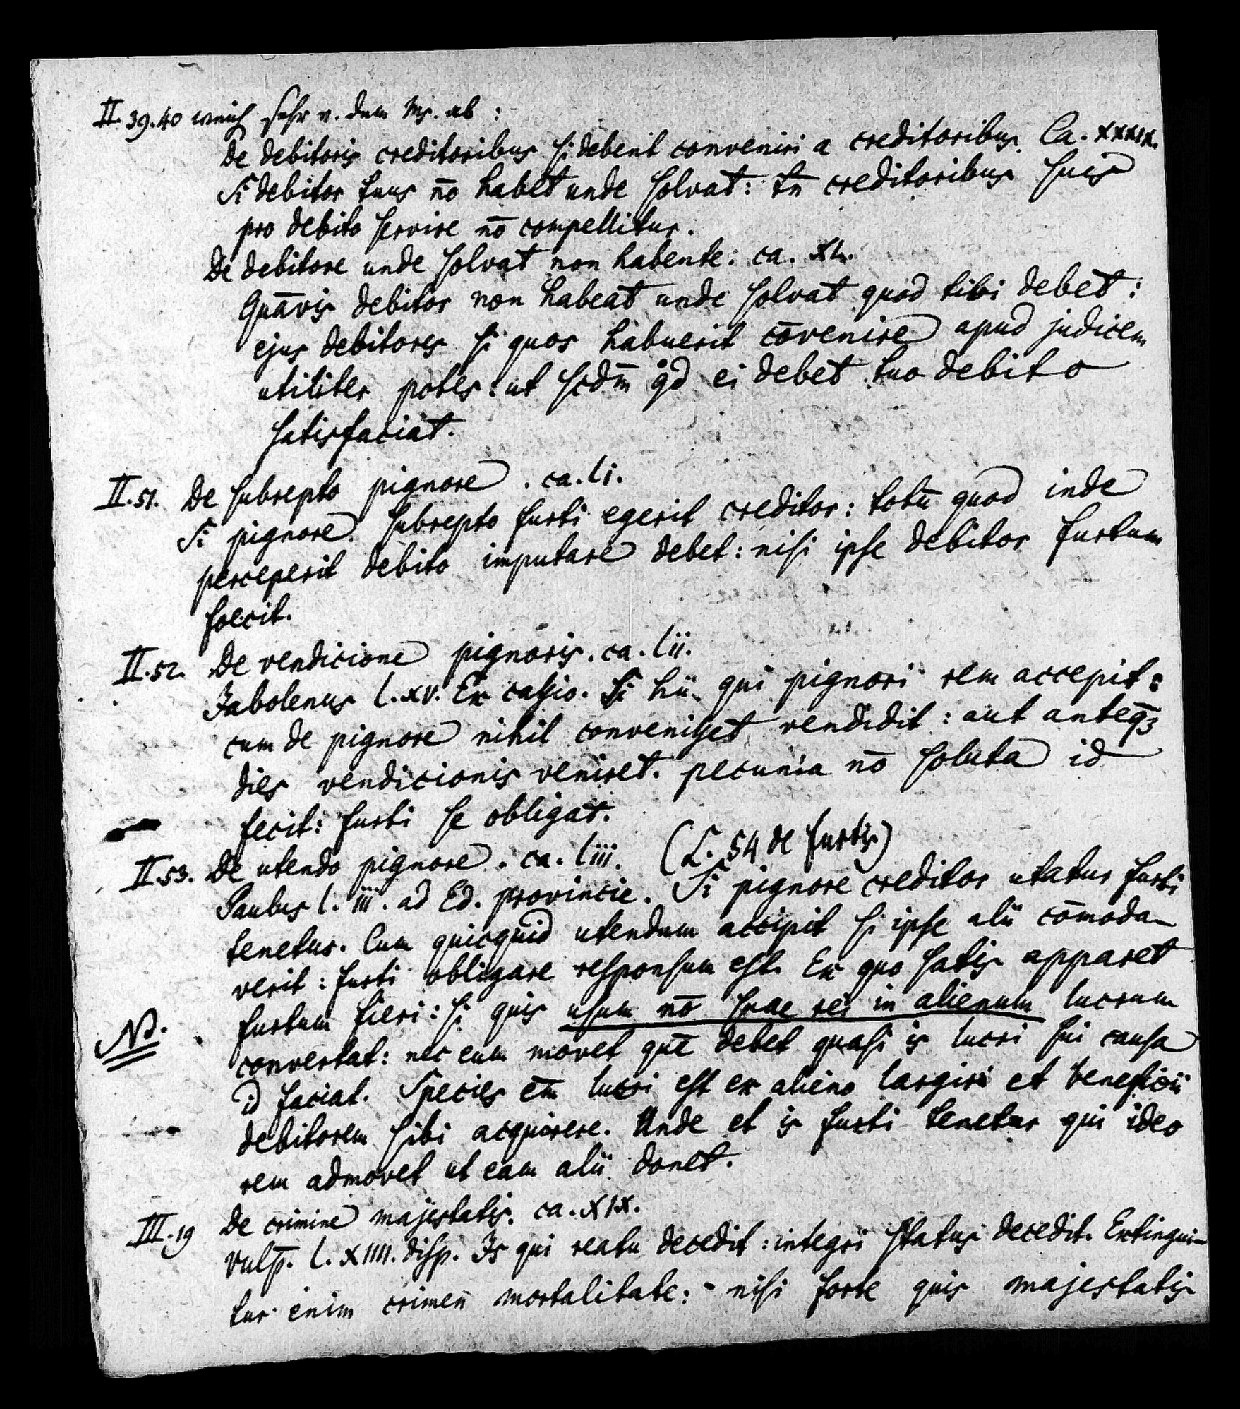 II. 39.40 weich sehr v. dem Ms. ab :
De debitoris creditoribus si debent conveniri a creditoribus. Ca. xxxix.
Si debitor tuus nō habet unde solvat : tn̄ creditoribus suis
pro debito servire nō compellitur.
De debitore unde solvat non habente: ca. xl.
Quāvis debitor non habeat unde solvat quod tibi debet :
ejus debitores si quos habuerit cōvenire apud judicem
utiliter potes : ut scdm̄ qd ei debet tuo debito
satisfaciat.
II. 51. De subrepto pignore . ca. li.
Si pignore subrepto furti egerit creditor : totū quod inde
perceperit debito imputare debet : nisi ipse debitor furtum
foecit.
II. 52. De vendicione pignoris . ca. lii.
Jabolenus l. xv. Ex cassio. Si hii qui pignori rem accepit :
cum de pignore nihil convenisset vendidit : aut anteq̄ꝫ
dies vendicionis veniret. pecunia nō soluta id
fecit : furti se obligat.
II. 53. De utendo pignore . ca. liii. (L. 54 de furtis)
Paulus l. iii. ad Ed. provincie. Si pignore creditor utatur furti
tenetur. Cum quicquid utendum accipit si ipse alii cōmoda-
verit : furti obligare responsum est. Ex quo satis apparet
furtum fieri : si quis usum nō suae rei in alienum lucrum
NB. convertat : nec eum movet qūe debet quasi is lucri sui causa
id faciat. Species em̄ lucri est ex alieno largiri et beneficii
debitorem sibi acquirere. Unde et is furti tenetur qui ideo
rem admovet ut eam alii donet.
III. 19 De crimine majestatis. ca. XIX.
vulp̄. l. XIIII. disp. Is qui reatu decedit : integri status decedit. Extingui-
tur enim crimen mortalitate : - nisi forte quis majestatis